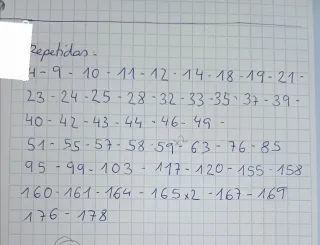 Repetidas =
4 - 9 - 10 - 11 - 12 - 14 - 18 - 19 - 21 -
23 - 24 - 25 - 28 - 32 - 33 - 35 - 37 - 39 -
40 - 42 - 43 - 44 - 46 - 49 -
51 - 55 - 57 - 58 - 59 - 63 - 76 - 85
95 - 99 - 103 - 117 - 120 - 155 - 158
160 - 161 - 164 - 165x2 - 167 - 169
176 - 178